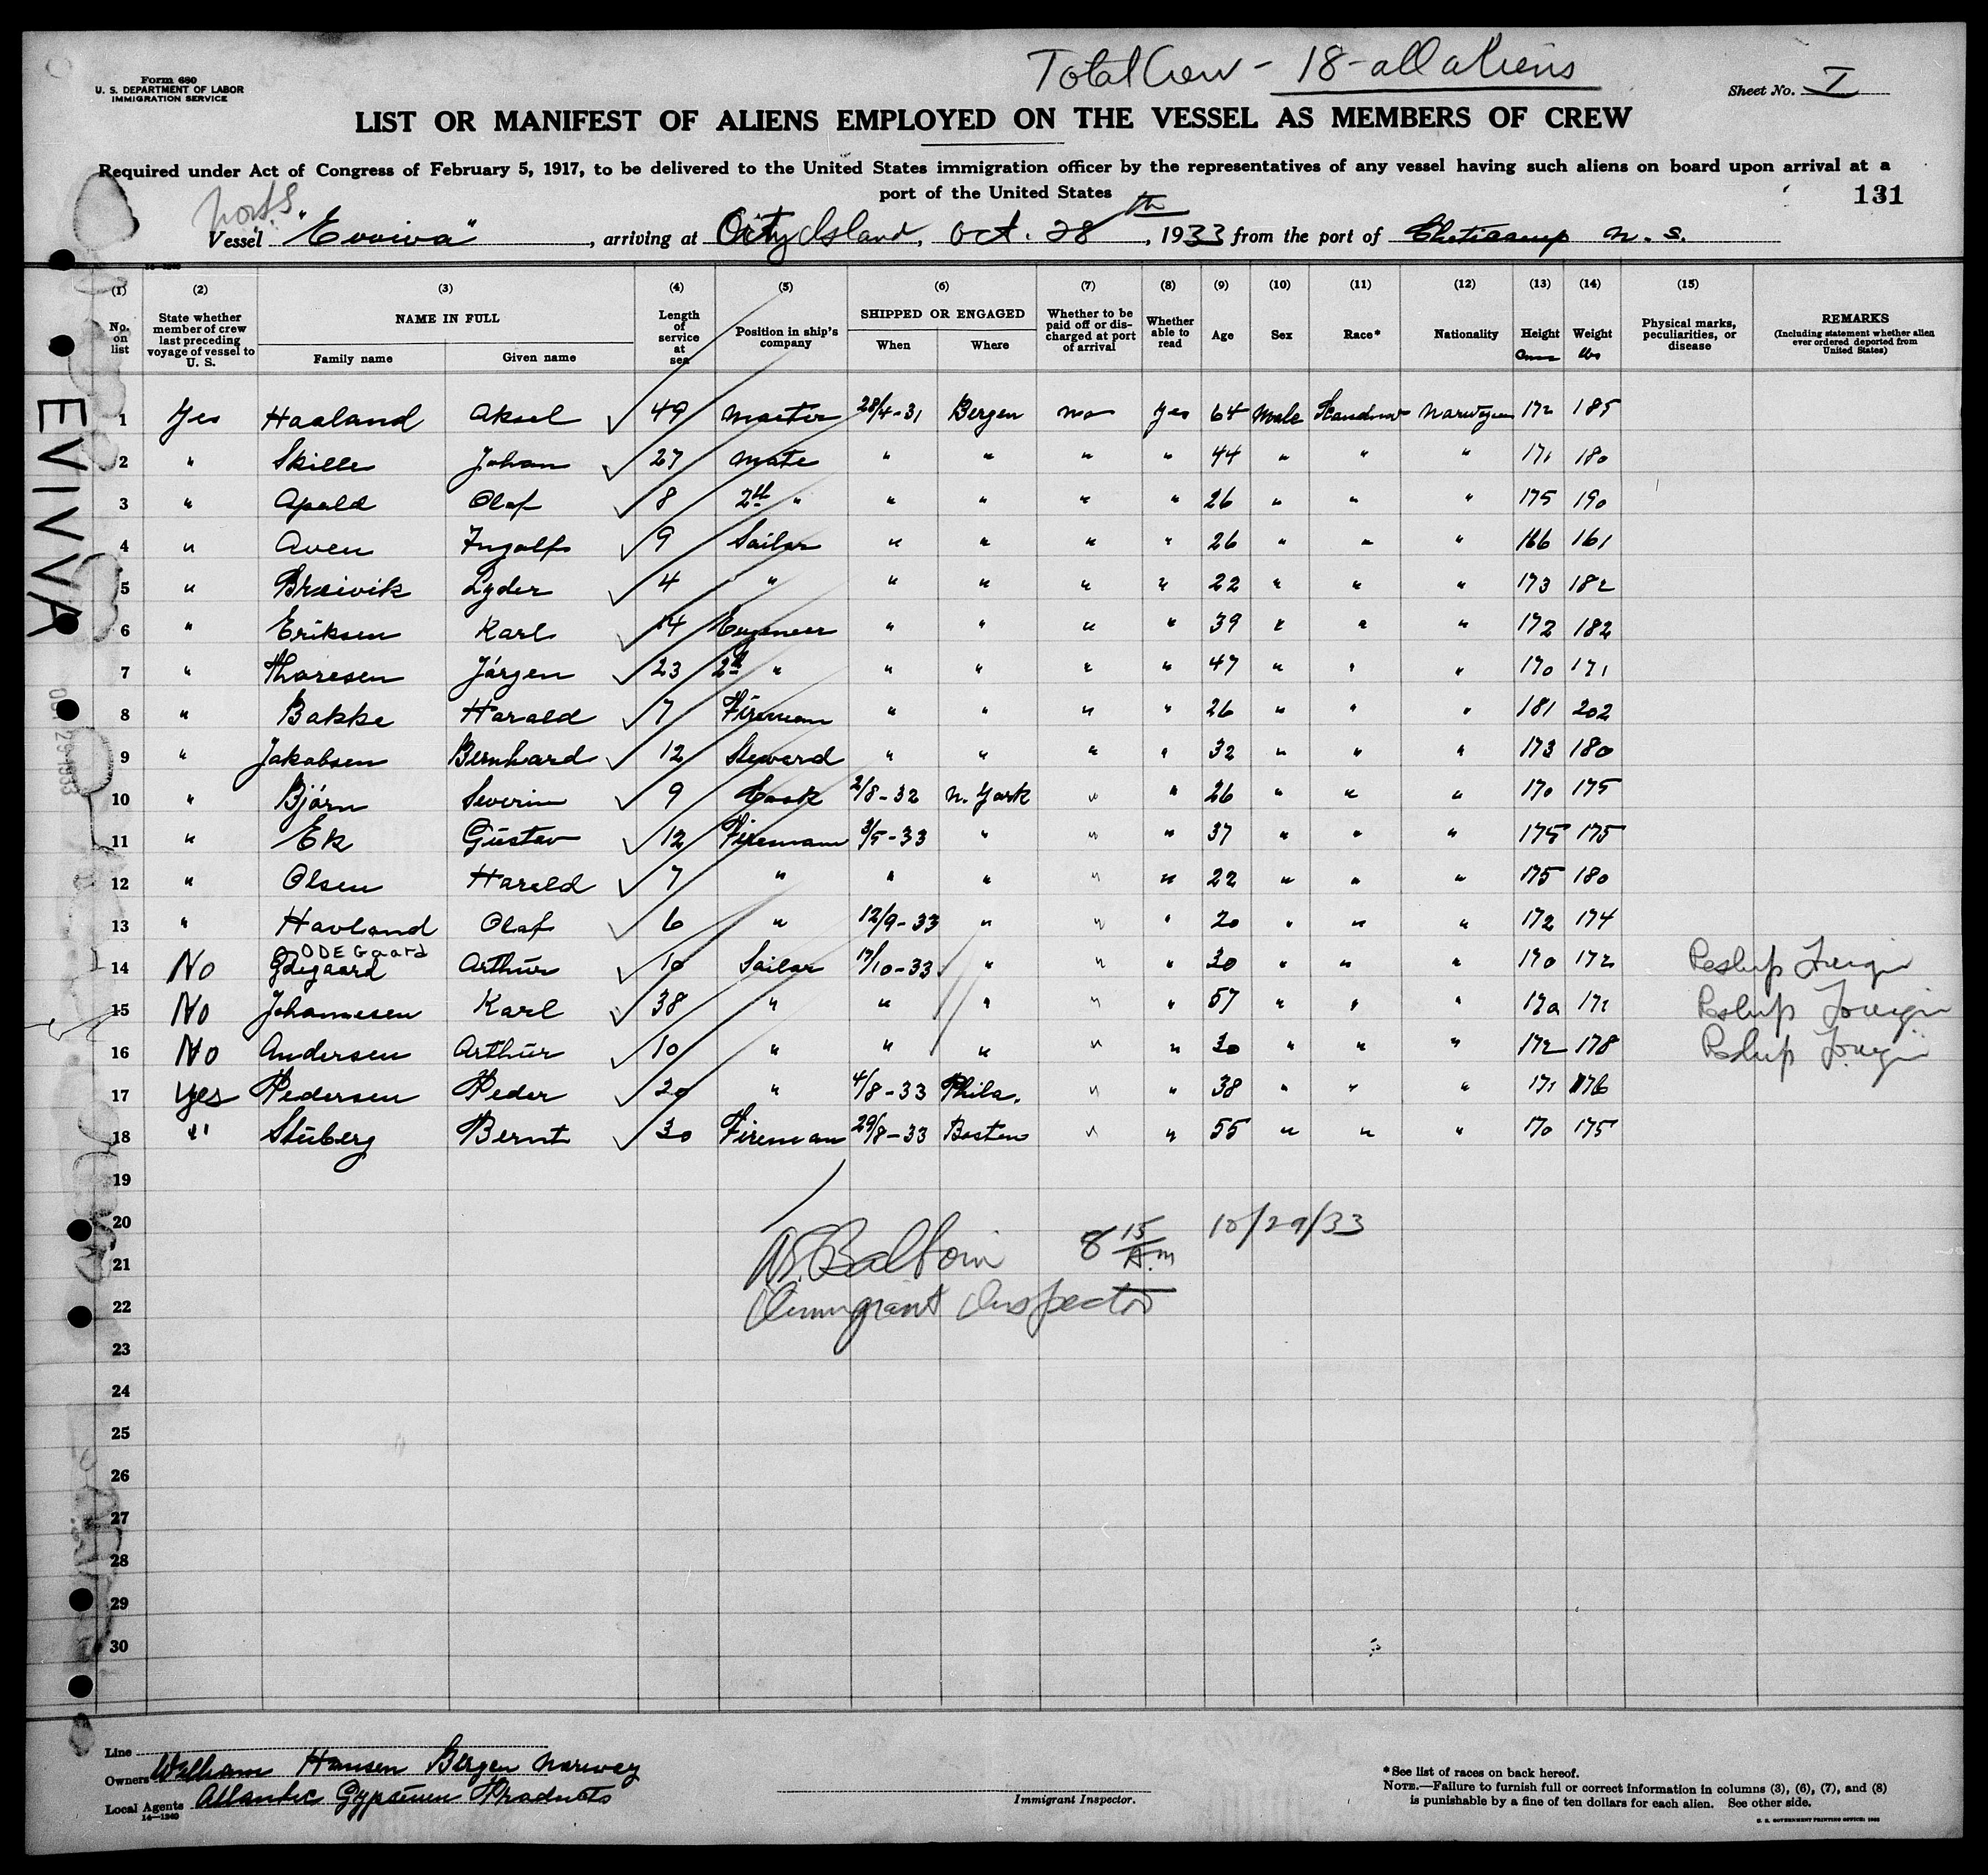 Total Crew - 18 - all aliens
Form 680
U. S. DEPARTMENT OF LABOR
IMMIGRATION SERVICE
Sheet No. I
LIST OR MANIFEST OF ALIENS EMPLOYED ON THE VESSEL AS MEMBERS OF CREW
Required under Act of Congress of February 5, 1917, to be delivered to the United States immigration officer by the representatives of any vessel having such aliens on board upon arrival at a
port of the United States
131
Vessel "Evviva", arriving at City Island, Oct. 28th, 1933 from the port of Cheticamp N. S.
(1) (2) (3) (4) (5) (6) (7) (8) (9) (10) (11) (12) (13) (14) (15)
No. on list | State whether member of crew last preceding voyage of vessel to U. S. | NAME IN FULL Family name Given name | Length of service at sea | Position in ship's company | SHIPPED OR ENGAGED When Where | Whether to be paid off or discharged at port of arrival | Whether able to read | Age | Sex | Race* | Nationality | Height | Weight lbs | Physical marks, peculiarities, or disease | REMARKS (Including statement whether alien ever ordered deported from United States)
1 Yes Haaland Aksel 49 Master 28/4-31 Bergen no yes 64 Male Scandinav Norwegian 172 185
2 " Skille Johan 27 Mate " " " " 44 " " " 171 180
3 " Apald Olaf 8 2th " " " " " 26 " " " 175 190
4 " Aven Ingolf 9 Sailor " " " " 26 " " " 166 161
5 " Breivik Lyder 4 " " " " " 22 " " " 173 182
6 " Eriksen Karl 14 Engeneer " " " " 39 " " " 172 182
7 " Thoresen Jørgen 23 2th " " " " " 47 " " " 170 171
8 " Bakke Harald 7 Fireman " " " " 26 " " " 181 202
9 " Jakobsen Bernhard 12 Steward " " " " 32 " " " 173 180
10 " Bjørn Severin 9 Cook 2/8-32 N. York " " 26 " " " 170 175
11 " Ek Gustav 12 Firemann 3/5-33 " " " 37 " " " 175 175
12 " Olsen Harald 7 " " " " " 22 " " " 175 180
13 " Havland Olaf 6 " 12/9-33 " " " 20 " " " 172 174
ODEGaard
14 No Ødegaard Arthur 10 Sailor 17/10-33 " " " 30 " " " 170 172 Reship Foreign
15 No Johannesen Karl 38 " " " " " 57 " " " 170 171 Reship Foreign
16 No Andersen Arthur 10 " " " " " 30 " " " 172 178 Reship Foreign
17 Yes Pedersen Peder 20 " 4/8-33 Phila. " " 38 " " " 171 176
18 " Stuberg Bernt 30 Fireman 29/8-33 Boston " " 55 " " " 170 175
19
20
21
22
23
24
25
26
27
28
29
30
8 15 A.m 10/29/33
Immigrant Inspector
EVIVVA
Line
Owners William Hansen Bergen Norway
Local Agents Atlantic Gypsum Products
14-1240
Immigrant Inspector.
*See list of races on back hereof.
NOTE.—Failure to furnish full or correct information in columns (3), (6), (7), and (8)
is punishable by a fine of ten dollars for each alien. See other side.